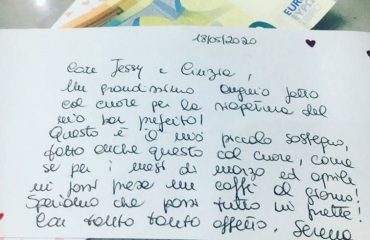 EURO
18/05/2020
Care Jessy e Cinzia,
Un grandissimo augurio fatto
col cuore per la riapertura del
mio bar preferito!
Questo è il mio piccolo sostegno,
fatto anche questo col cuore, come
se per i mesi di marzo ed aprile
mi fossi presa un caffè al giorno!
Speriamo che passi tutto in fretta!
Con tanto tanto affetto, Serena